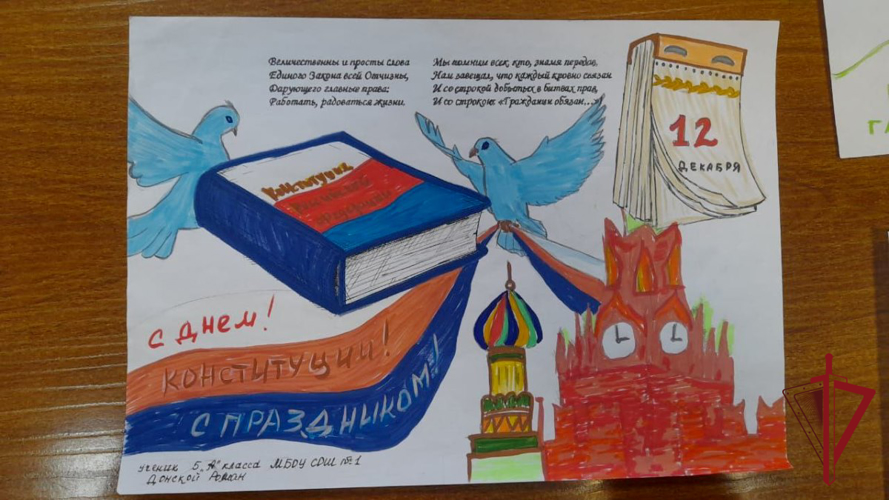 Величественны и просты слова
Единого Закона всей Отчизны,
Дарующего главные права:
Работать, радоваться жизни.
Мы помним всех, кто, знамя передав,
Нам завещал, что каждый кровно связан
И со строкой добытых в битвах прав,
И со строкою: «Гражданин обязан...»
12
ДЕКАБРЯ
Конституция
Российской
Федерации
С ДНЕМ!
КОНСТИТУЦИИ!
С ПРАЗДНИКОМ!
ученик 5 "А" класса МБОУ СОШ №1
Донской Роман